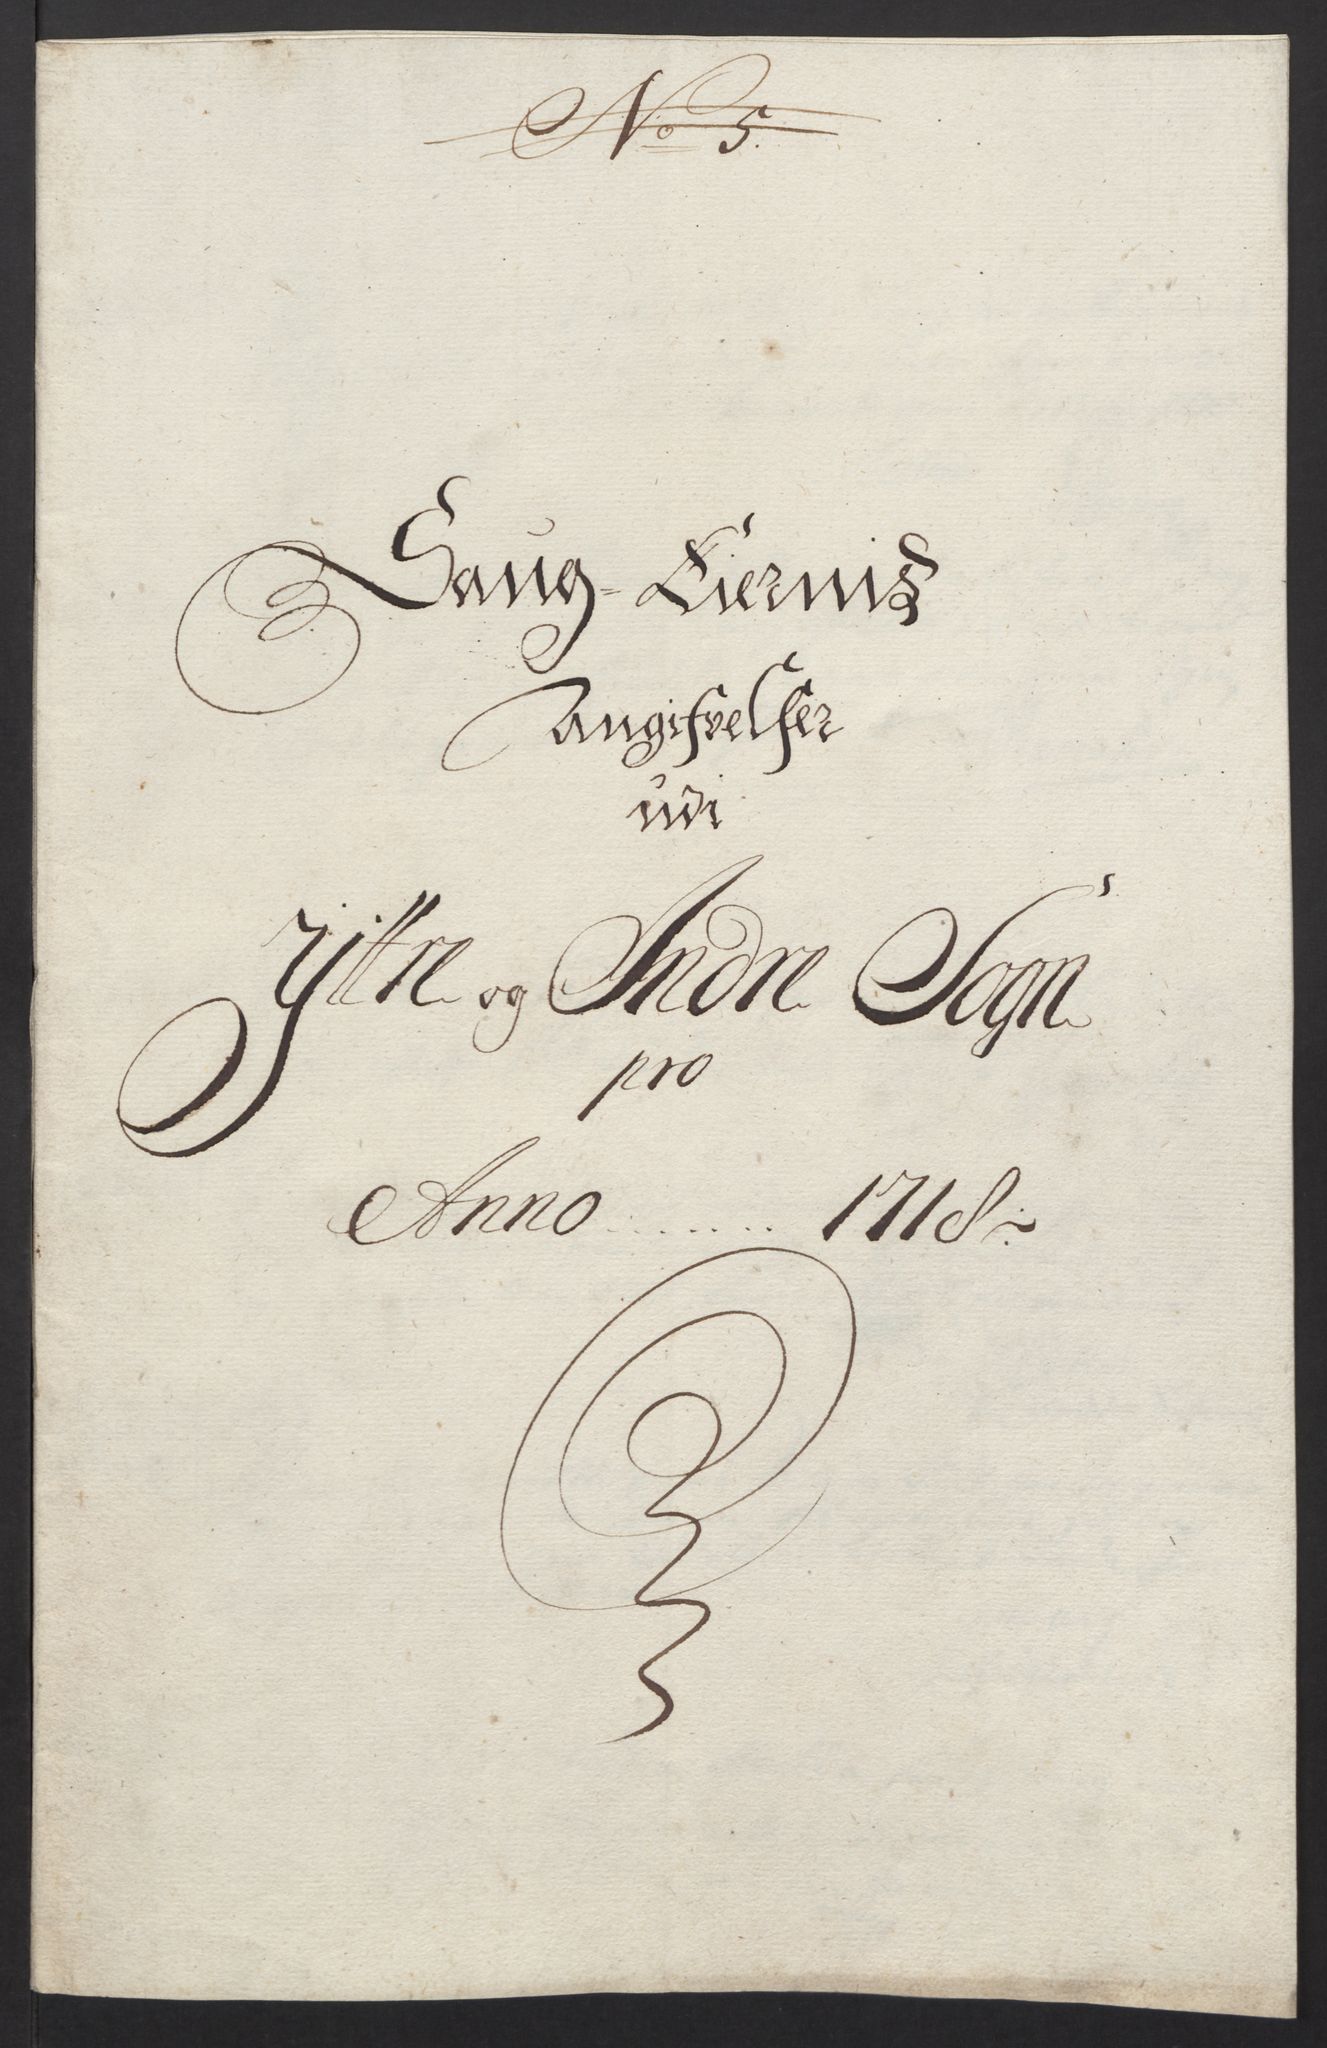 No 5.
Saug-Eierniß
angifvelser
udi
Yttre og Indre Sogn
pro
Anno ....... 1718